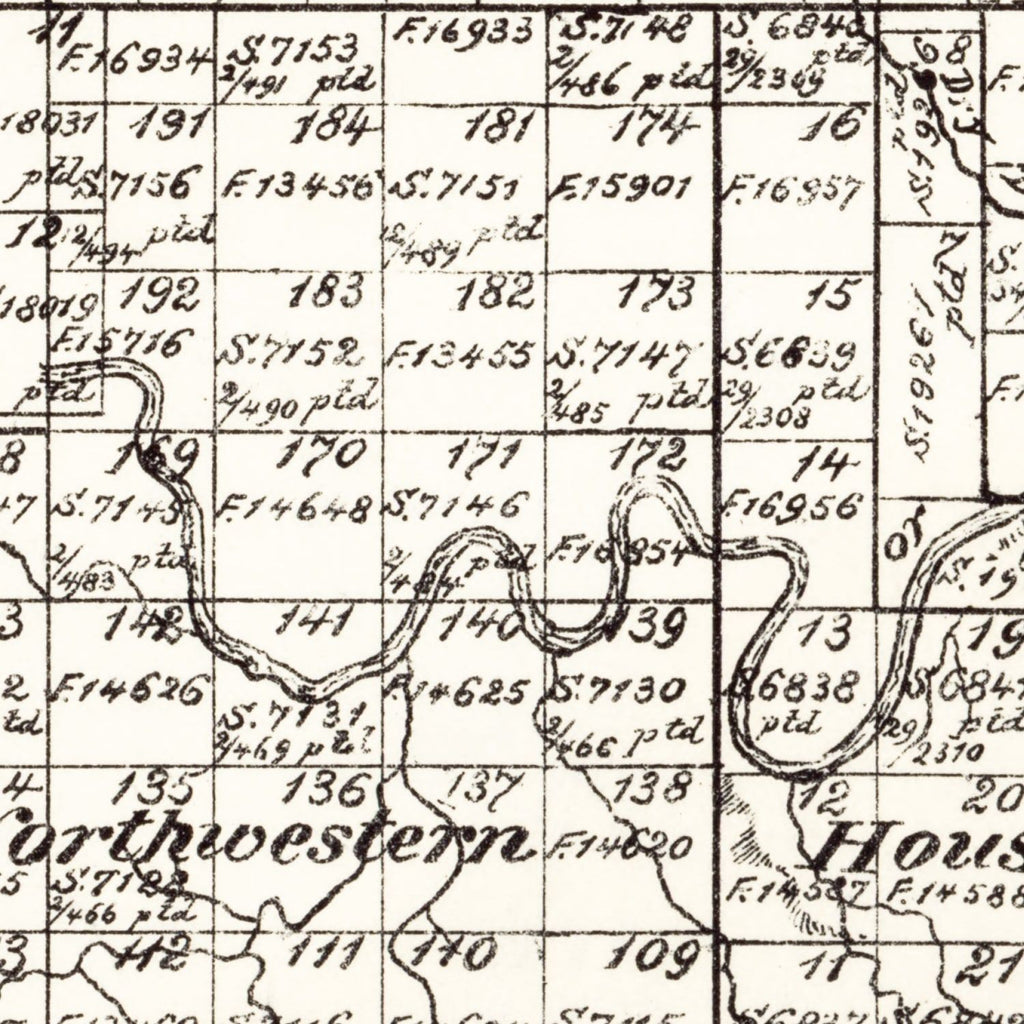 11
F.16934
S.7153
2/491 ptd
F.16933
S.7148
2/486 ptd
S.6840
ptd
29/2309
68
18031
191
184
181
174
16
ptd
S.7156
F.13456
S.7151
F.15901
F.16957
12/494 ptd
12/489 ptd
12
18019
192
183
182
173
15
F.15716
S.7152
F.13455
S.7147
S.6839
ptd
2/490 ptd
2/485 ptd
29/2308 ptd
S.19267
ptd
169
170
171
172
14
S.7145
F.14648
S.7146
F.16954
F.16956
2/483 ptd
2/484 ptd
or
S.19
142
141
140
139
13
19
F.14626
S.7131
2/469 ptd
F.14625
S.7130
2/466 ptd
S.6838
ptd
S.6841
ptd
29/2310
135
136
137
138
12
20
orthwestern
Hous
S.7128
2/466 ptd
F.14620
F.14587
F.14588
112
111
110
109
11
21
S.7116
S.7115
S.6837